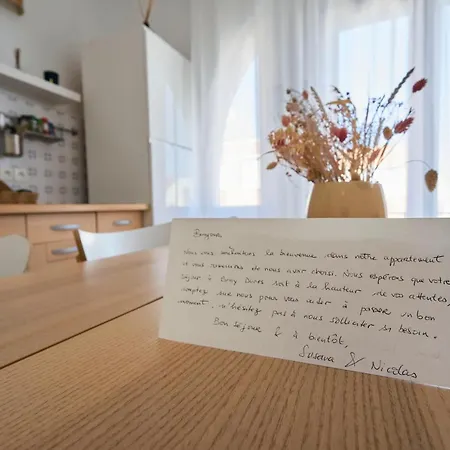 Bonjour,
Nous vous souhaitons la bienvenue dans notre appartement
et vous remercions de nous avoir choisi. Nous espérons que votre
séjour à Dunes soit à la hauteur de vos attentes,
comptez sur nous pour vous aider à passer un bon
moment, n'hésitez pas à nous solliciter si besoin.
Bon séjour & à bientôt,
Susana & Nicolas